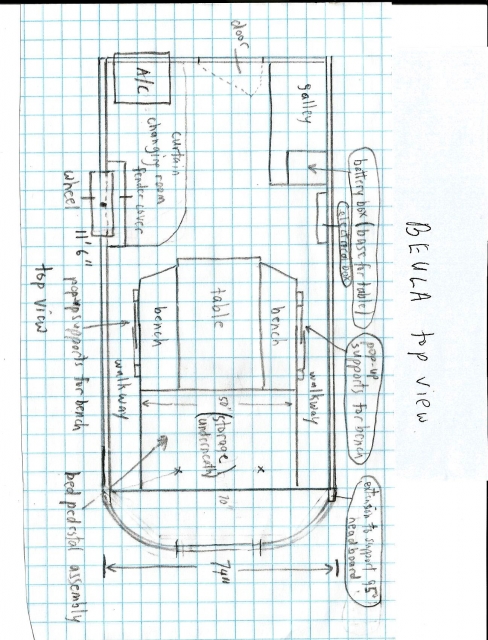 BEULA top view.
door
A/C
galley
curtain
changing room
fender cover
wheel
battery box (base for table)
electrical box
11'6"
top view
pop-up supports for bench
bench
table
bench
pop-up
supports for bench
walkway
walkway
50"
(storage
underneath)
70"
bed pedestal assembly
74"
extension to support 95°
headboard